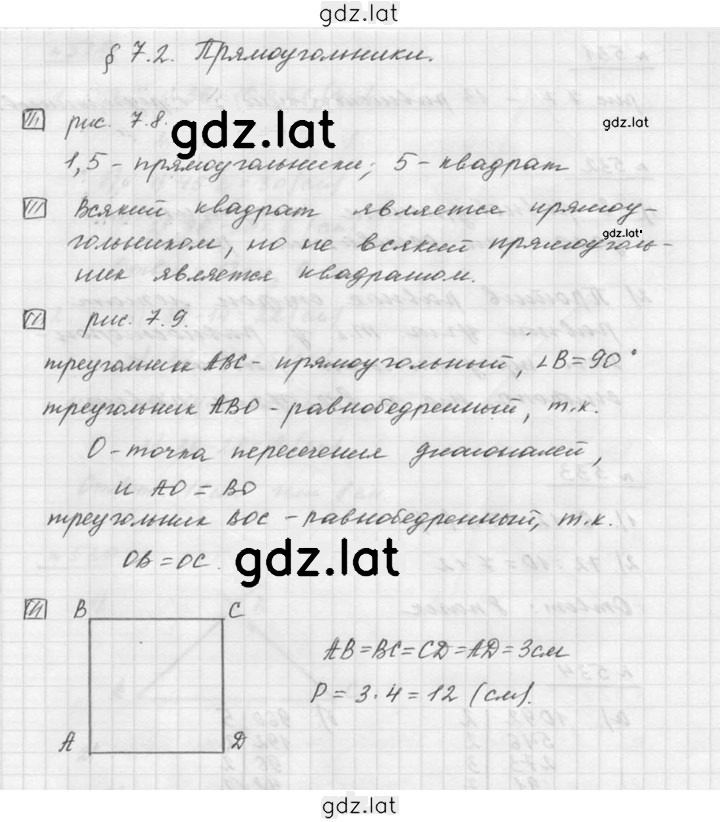 gdz.lat
§ 7.2. Прямоугольники.
рис. 7.8.
gdz.lat
gdz.lat
1,5 - прямоугольники; 5 - квадрат
Всякий квадрат является прямоу-
гольником, но не всякий прямоуголь-
gdz.lat
ник является квадратом.
рис. 7.9.
треугольник ABC - прямоугольный, ∠B = 90°
треугольник ABO - равнобедренный, т.к.
O - точка пересечения диагоналей,
и AO = BO
треугольник BOC - равнобедренный, т.к.
OB = OC.
gdz.lat
B C
AB = BC = CD = AD = 3см
P = 3 · 4 = 12 (см).
A D
gdz.lat